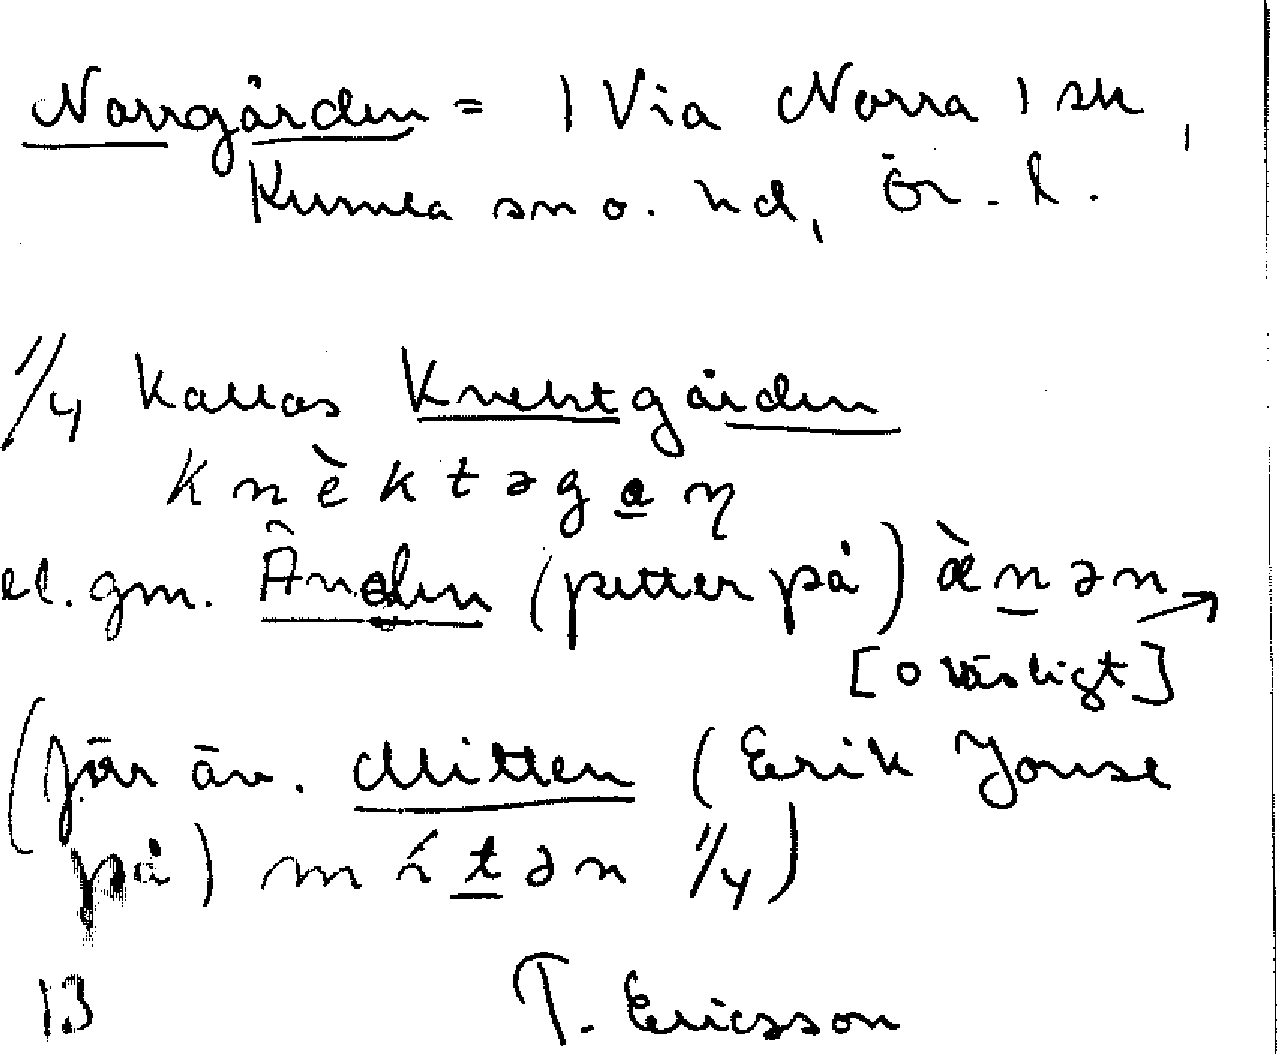 Norrgården = 1 Via Norra 1 sk,
Kumla sn o. hd, Ör. l.
1/4 kallas Knektgården
knèktəgaɳ
el. gm. Änden (petter på) æ̀nən
[ovänligt]
(förr äv. Mitten (Erik Jonse
på) mítən 1/4)
13 T. Ericsson